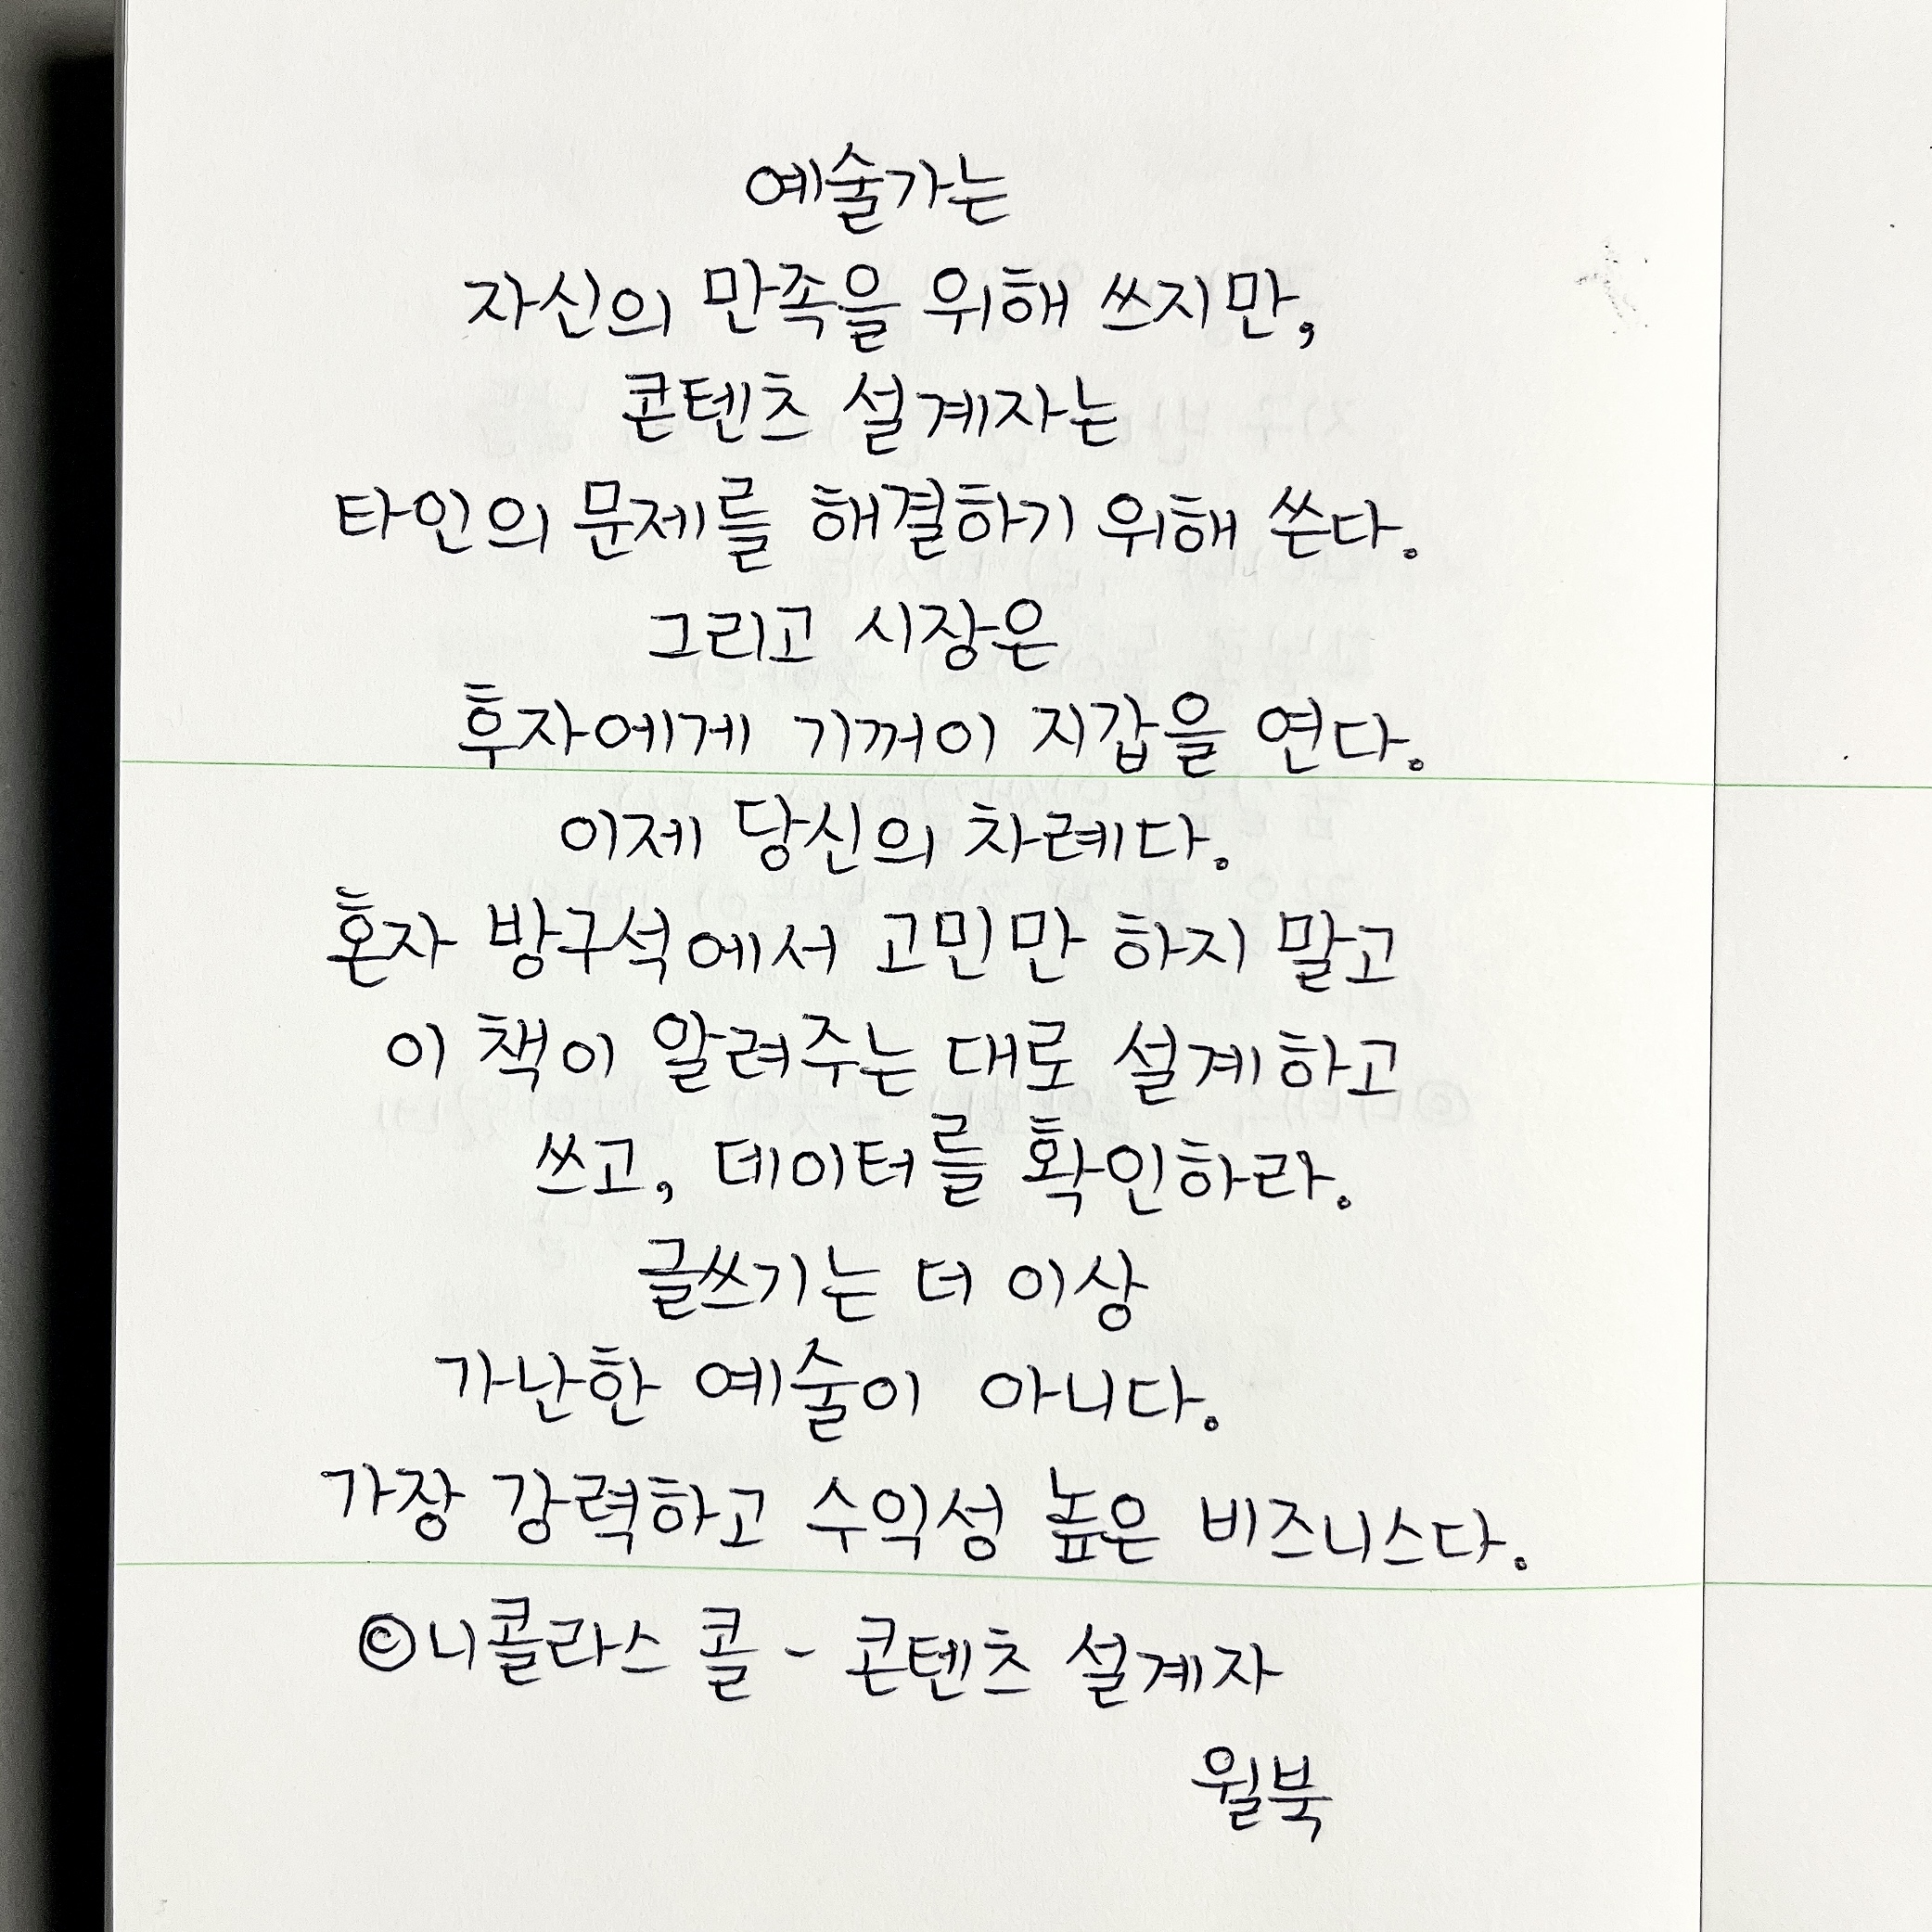 예술가는
자신의 만족을 위해 쓰지만,
콘텐츠 설계자는
타인의 문제를 해결하기 위해 쓴다.
그리고 시장은
후자에게 기꺼이 지갑을 연다.
이제 당신의 차례다.
혼자 방구석에서 고민만 하지 말고
이 책이 알려주는 대로 설계하고
쓰고, 데이터를 확인하라.
글쓰기는 더 이상
가난한 예술이 아니다.
가장 강력하고 수익성 높은 비즈니스다.
©니콜라스 콜 - 콘텐츠 설계자
윌북